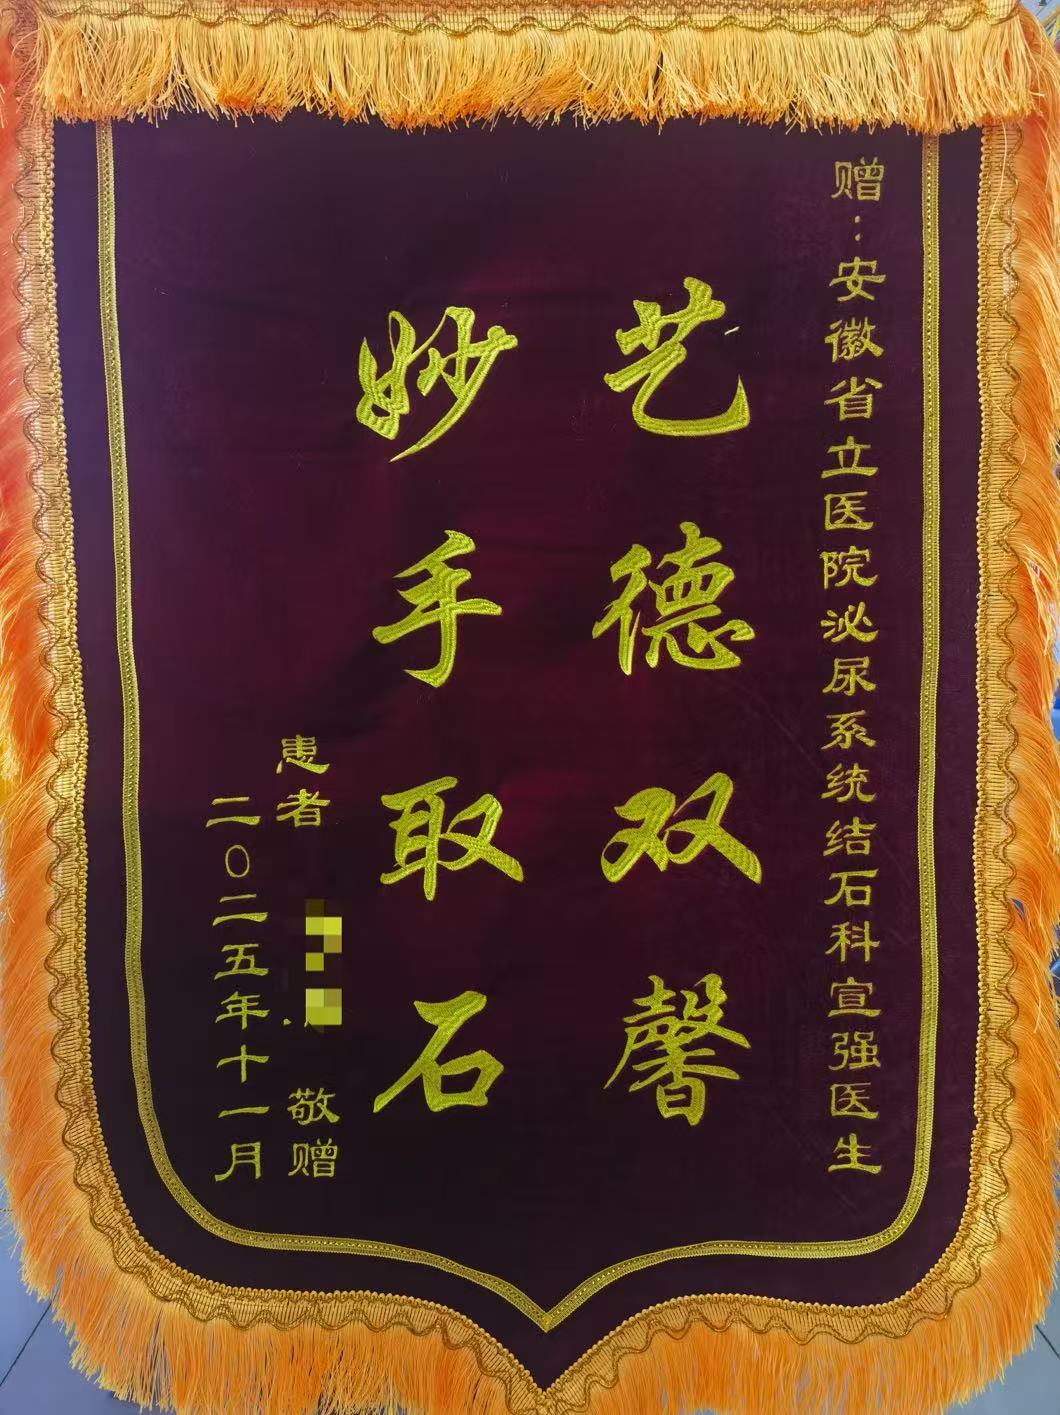 赠:安徽省立医院泌尿系统结石科宣强医生
艺德双馨
妙手取石
患者 敬赠
二〇二五年十一月